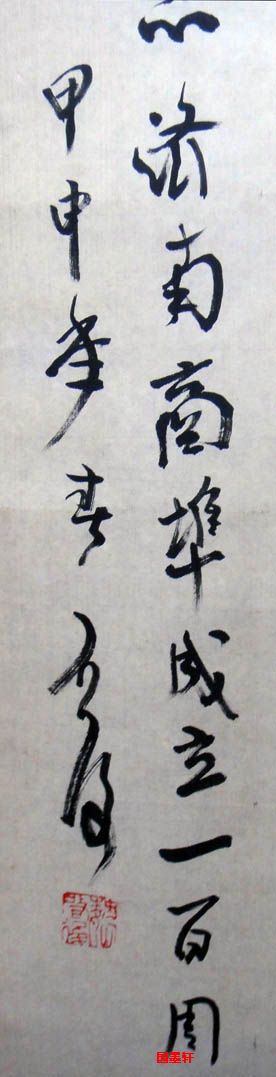 济南商埠成立一百周
甲申年春
国墨轩